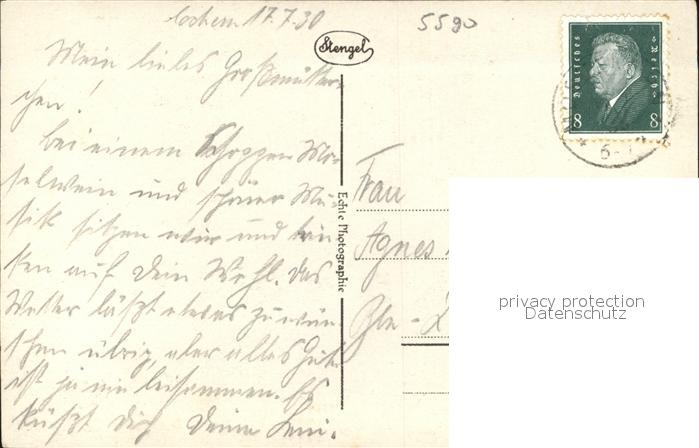 Cochem 17.7.30
5590
Stengel
Deutsches Reich
8 8
Mein liebes Großmütter-
chen!
Bei einem Schoppen Mo-
selwein und schöner Mu-
sik sitzen wir und trin-
ken auf Dein Wohl. Das
Wetter läßt etwas zu wün-
schen übrig, aber alles Gute
ist ja nie beisammen. Es
küßt Dich Deine Leni.
Echte Photographie
Frau
Agnes
Bln-
privacy protection
Datenschutz